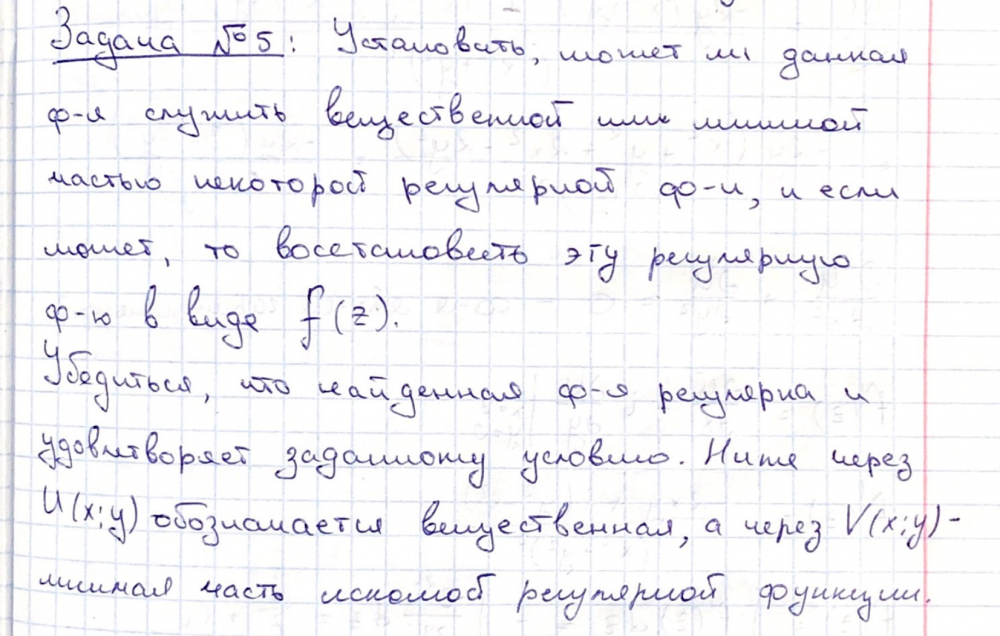 Задача №5: Установить, может ли данная
ф-я служить вещественной или мнимой
частью некоторой регулярной ф-и, и если
может, то восстановить эту регулярную
ф-ю в виде f(z).
Убедиться, что найденная ф-я регулярна и
удовлетворяет заданному условию. Ниже через
U(x;y) обозначается вещественная, а через V(x;y)-
мнимая часть искомой регулярной функции.